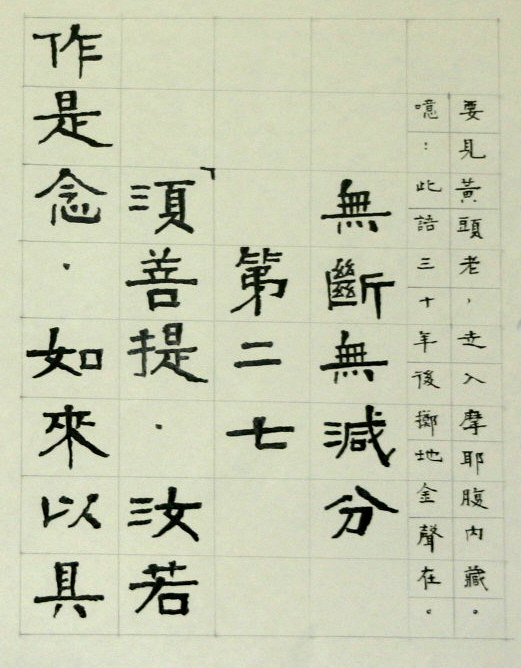 要見黃頭老，走入摩耶腹內藏。
噫：此語三十年後擲地金聲在。
無斷無減分
第二七
「須菩提．汝若
作是念．如來以具